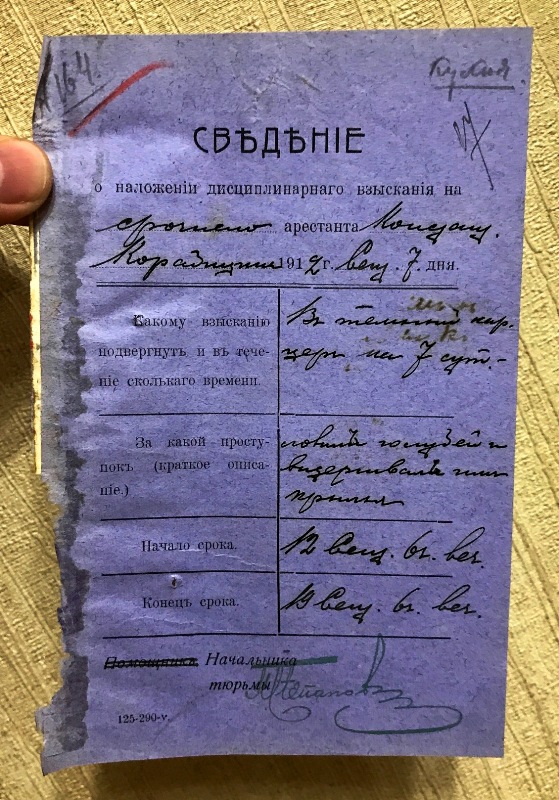 164.
СВѢДѢНІЕ
о наложеніи дисциплинарнаго взысканія на
срочнаго арестанта
1912 г. Сент. 7 дня.
Какому взысканію
подвергнутъ и въ тече-
ніе сколькаго времени.
Въ темный кар-
церъ на 7 сут.-
За какой просту-
покъ (краткое описа-
ніе.)
ловилъ голубей и
выдергивалъ имъ
крылья
Начало срока.
12 Сент. 6 ч. веч.
Конецъ срока.
19 Сент. 6 ч. веч.
Помощника Начальника
тюрьмы
125-290-v.